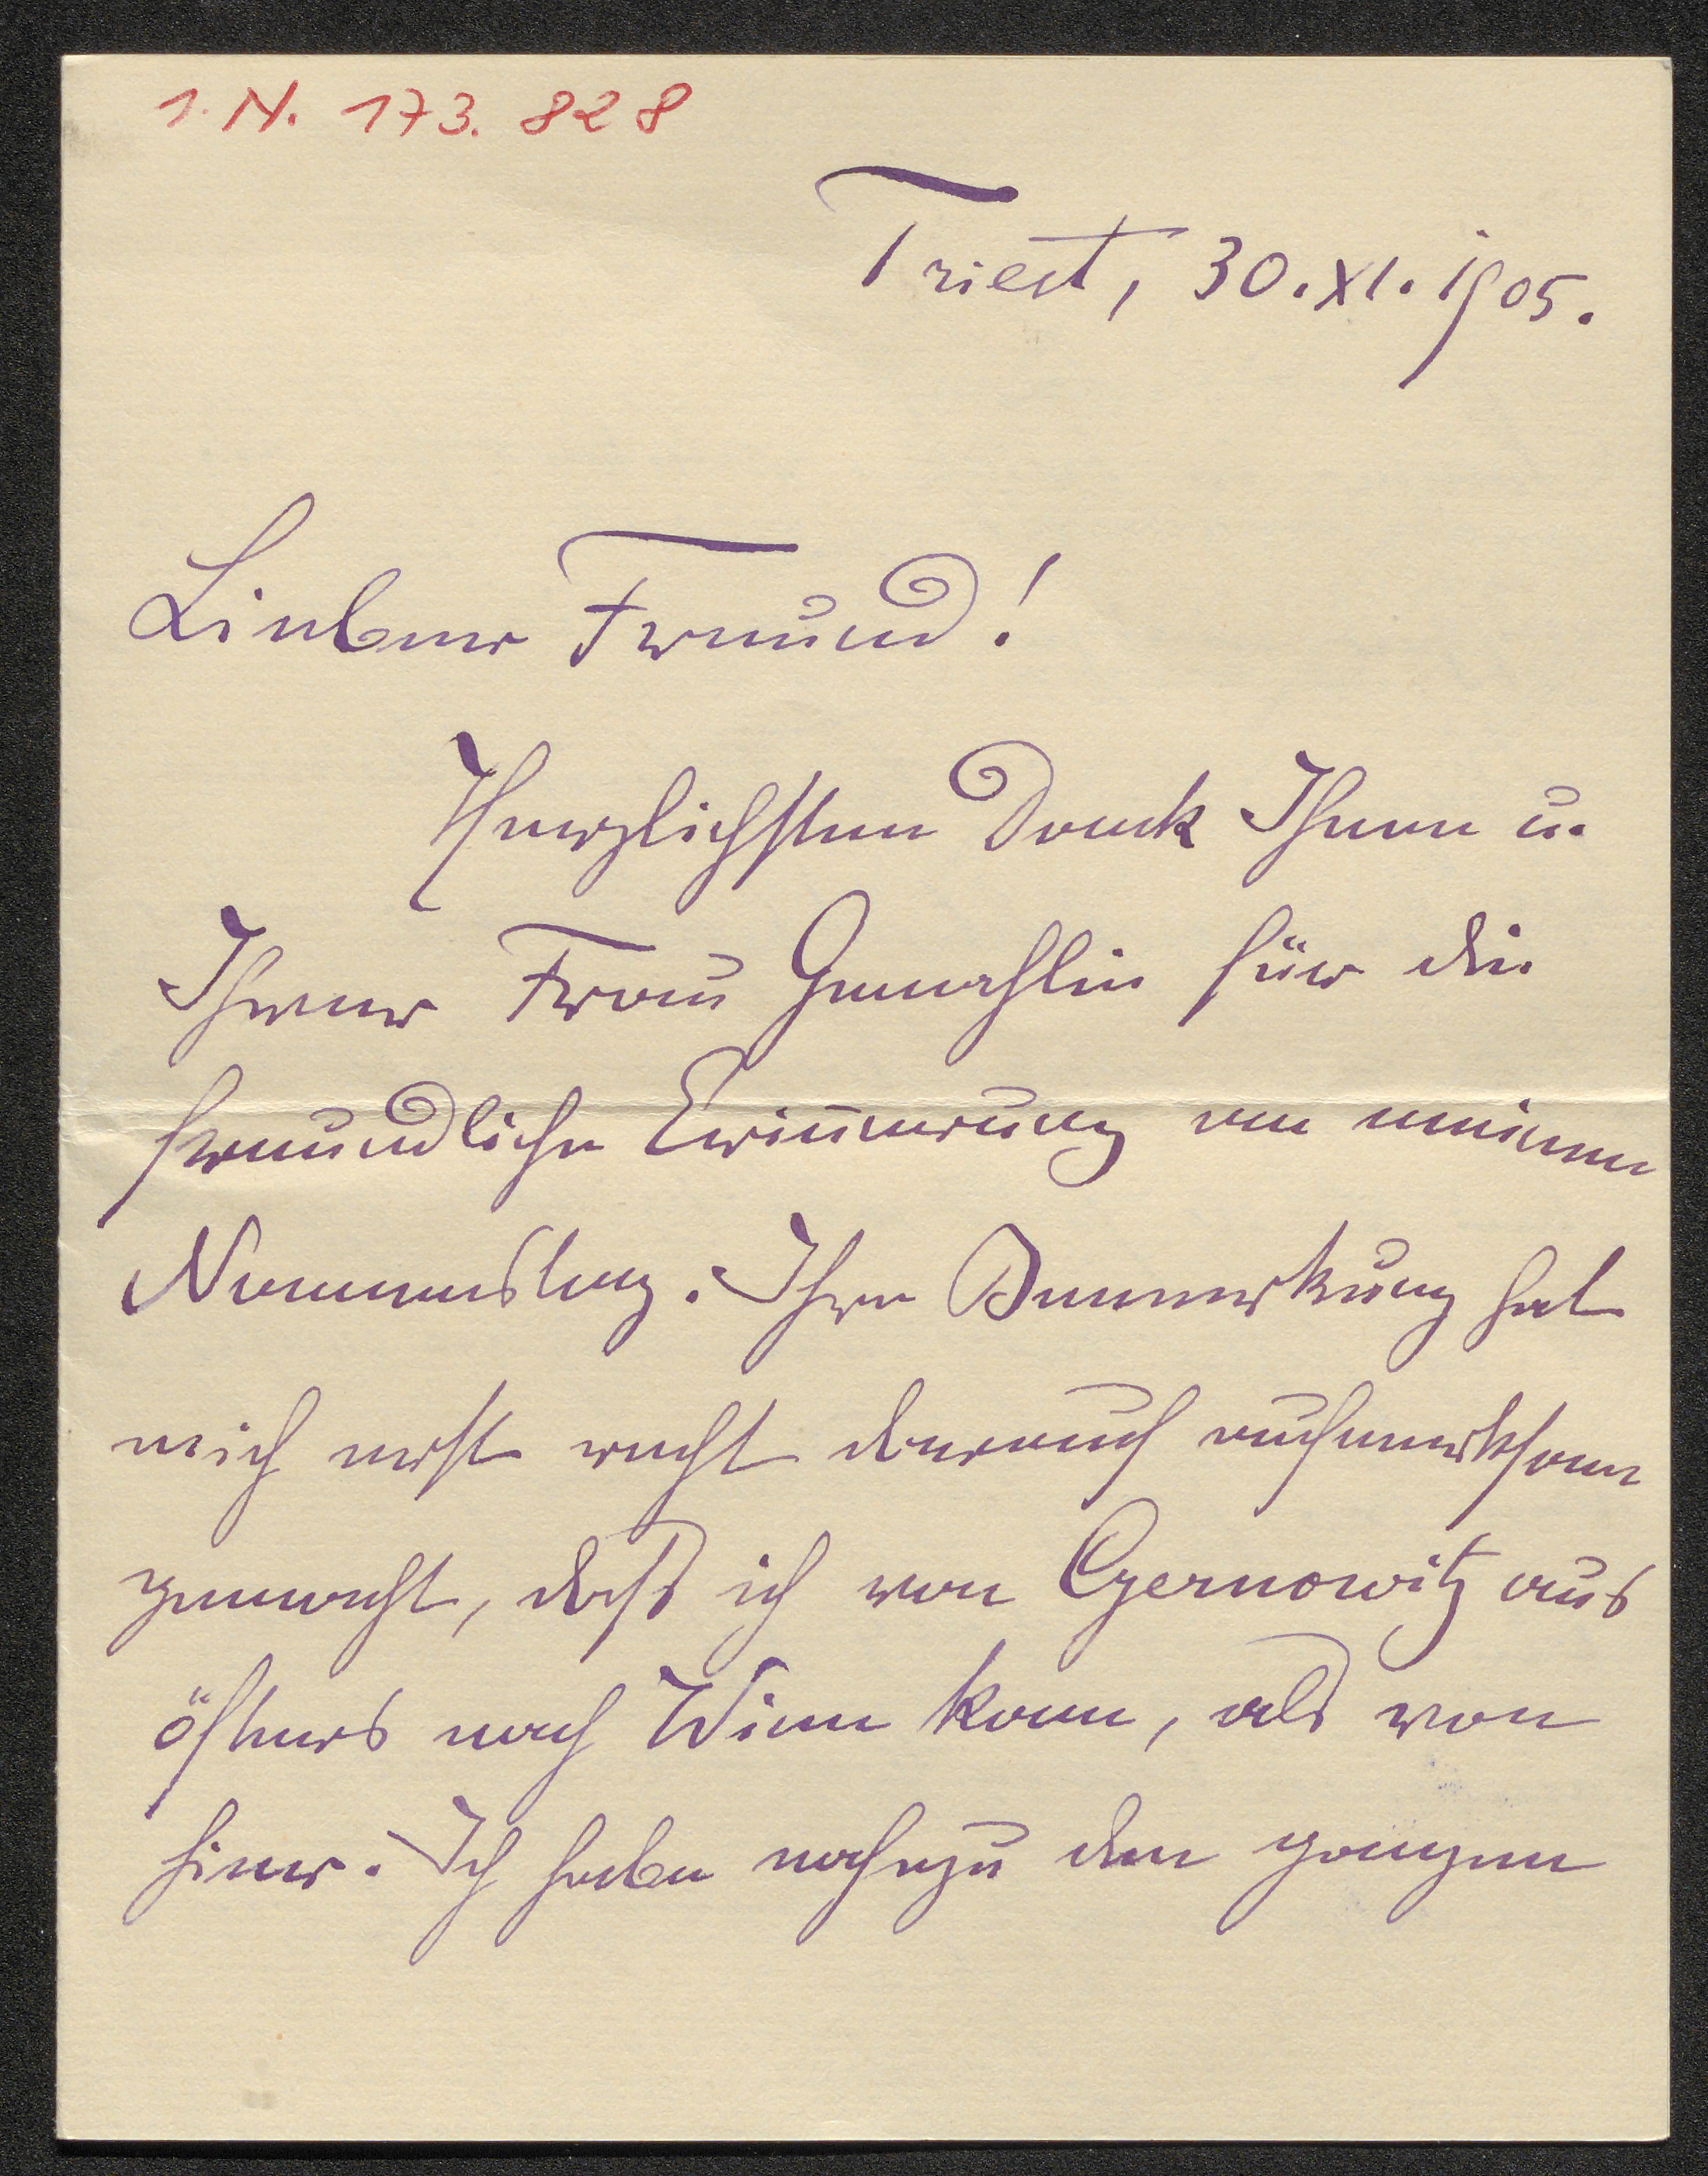 I. N. 173.828
Triest, 30. XI. 1905.
Lieber Freund!
Herzlichsten Dank Ihnen u.
Ihrer Frau Gemahlin für die
freundliche Erinnerung an meinen
Namenstag. Ihre Bemerkung hat
mich erst recht darauf aufmerksam
gemacht, daß ich von Czernowitz aus
öfters nach Wien kam, als von
hier. Ich habe nahezu den ganzen